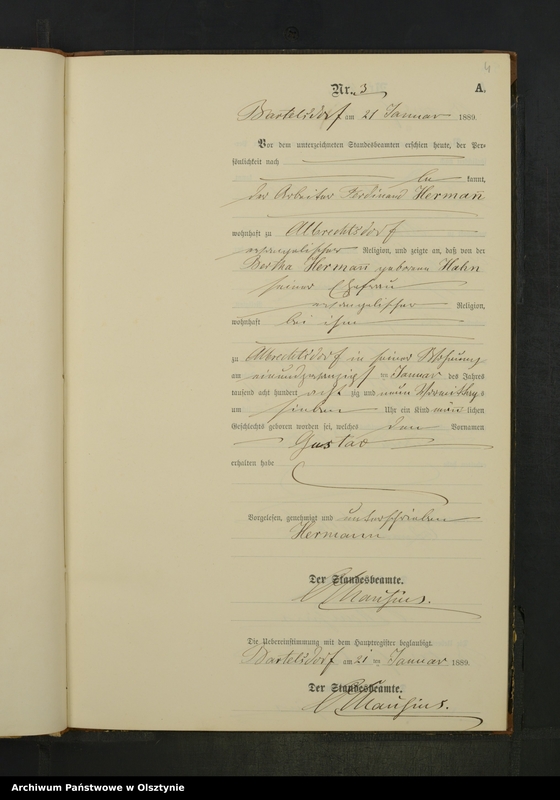 4
Nr. 3 A.
Bartelsdorf am 21 Januar 1889.
Vor dem unterzeichneten Standesbeamten erschien heute, der Per-
sönlichkeit nach
be kannt,
der Arbeiter Ferdinand Hermañ
wohnhaft zu Albrechtsdorf
evangelischer Religion, und zeigte an, daß von der
Bertha Hermañ geborene Hahn
seiner Ehefrau
evangelischer Religion,
wohnhaft bei ihm
zu Albrechtsdorf in seiner Wohnung
am einundzwanzigsten Januar des Jahrs
tausend acht hundert acht zig und neun Vormittags
um sieben Uhr ein Kind män lichen
Geschlechts geboren worden sei, welches den Vornamen
Gustav
erhalten habe
Vorgelesen, genehmigt und unterschrieben
Hermann
Der Standesbeamte.
Die Uebereinstimmung mit dem Hauptregister beglaubigt.
Bartelsdorf am 21 ten Januar 1889.
Der Standesbeamte.
Archiwum Państwowe w Olsztynie